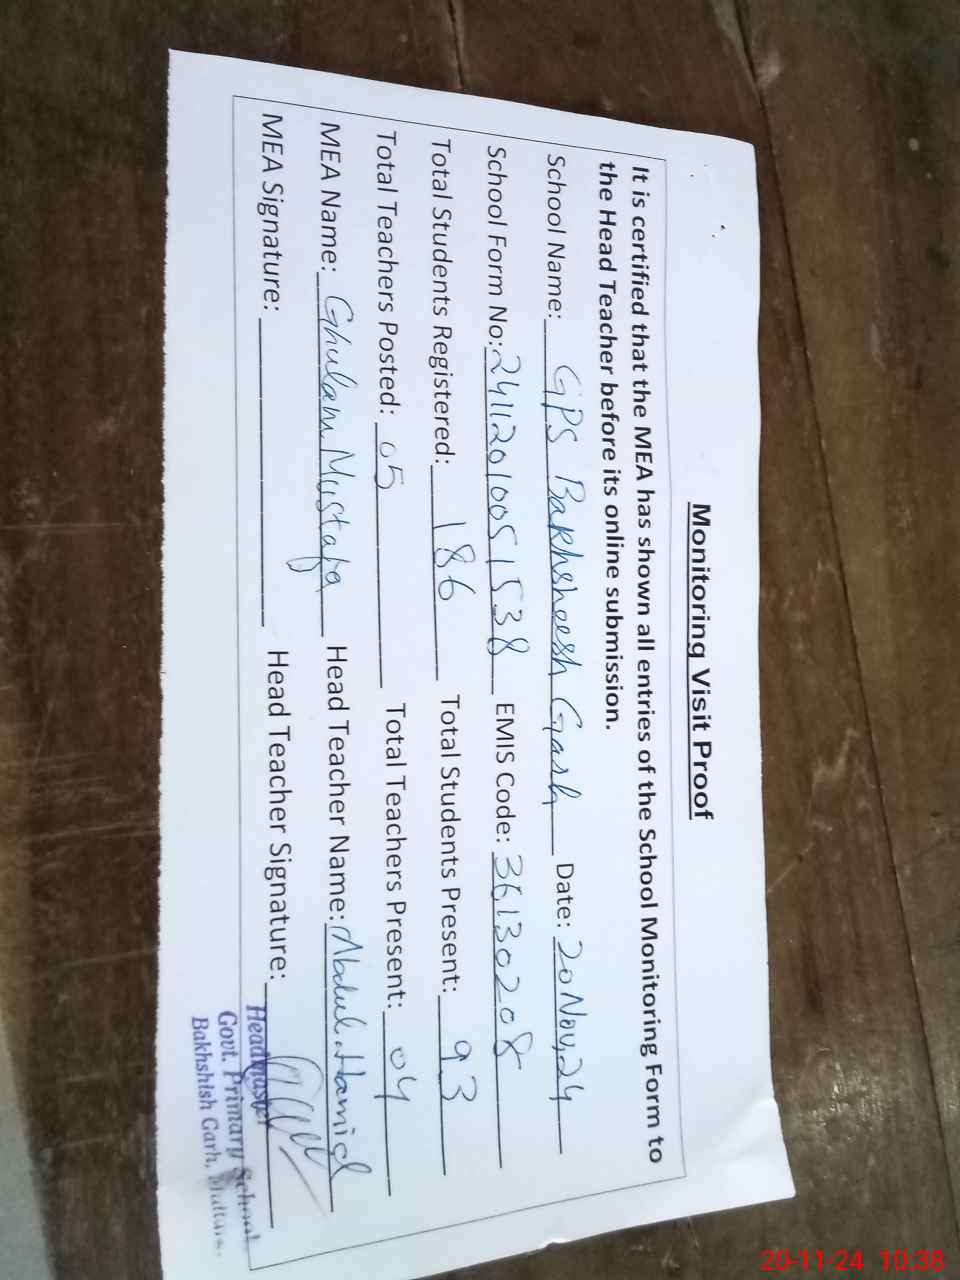 Monitoring Visit Proof
It is certified that the MEA has shown all entries of the School Monitoring Form to
the Head Teacher before its online submission.
School Name: GPS Bakhsheesh Garh Date: 20 Nov, 24
School Form No: 24112010051538 EMIS Code: 36130208
Total Students Registered: 186 Total Students Present: 93
Total Teachers Posted: 05 Total Teachers Present: 04
MEA Name: Ghulam Mustafa Head Teacher Name: Abdul Hamid
MEA Signature: Head Teacher Signature:
Headmaster
Govt. Primary School
Bakhshish Garh, Multan.
20-11-24 10:38